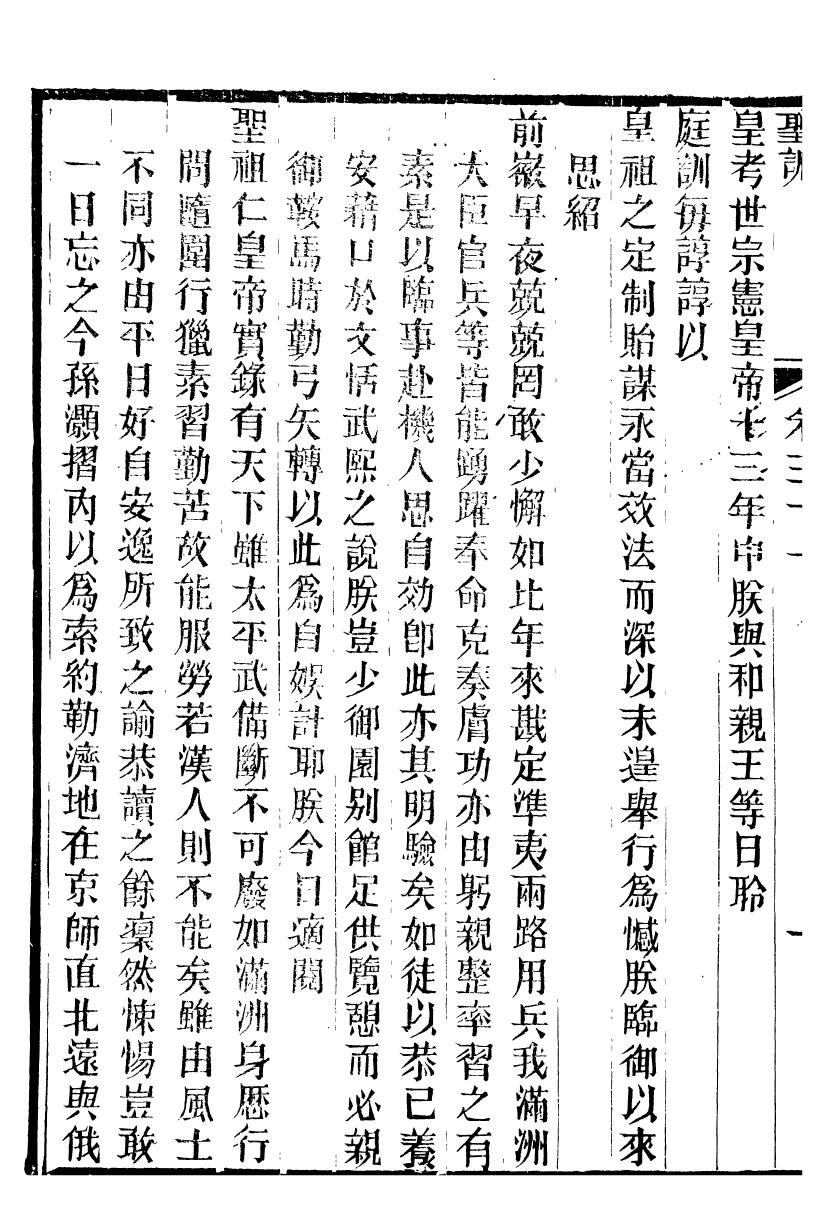 聖訓 卷三十一 一
皇考世宗憲皇帝十三年中朕與和親王等日聆
庭訓每諄諄以
皇祖之定制貽謀永當效法而深以未遑舉行爲憾朕臨御以來
思紹
前嶽早夜兢兢罔敢少懈如比年來戡定準夷兩路用兵我滿洲
大臣官兵等皆能踴躍奉命克奏膚功亦由躬親整率習之有
素是以臨事赴機人思自効卽此亦其明驗矣如徒以恭已養
安藉口於文恬武熙之說朕豈少御園别館足供覽憩而必親
御鞍馬時勤弓矢轉以此爲自娱計耶朕今日適閱
聖祖仁皇帝實錄有天下雖太平武備斷不可廢如滿洲身歷行
間隨圍行獵素習勤苦故能服勞若漢人則不能矣雖由風土
不同亦由平日好自安逸所致之諭恭讀之餘凜然悚惕豈敢
一日忘之今孫灝摺內以爲索約勒濟地在京師直北遠與俄